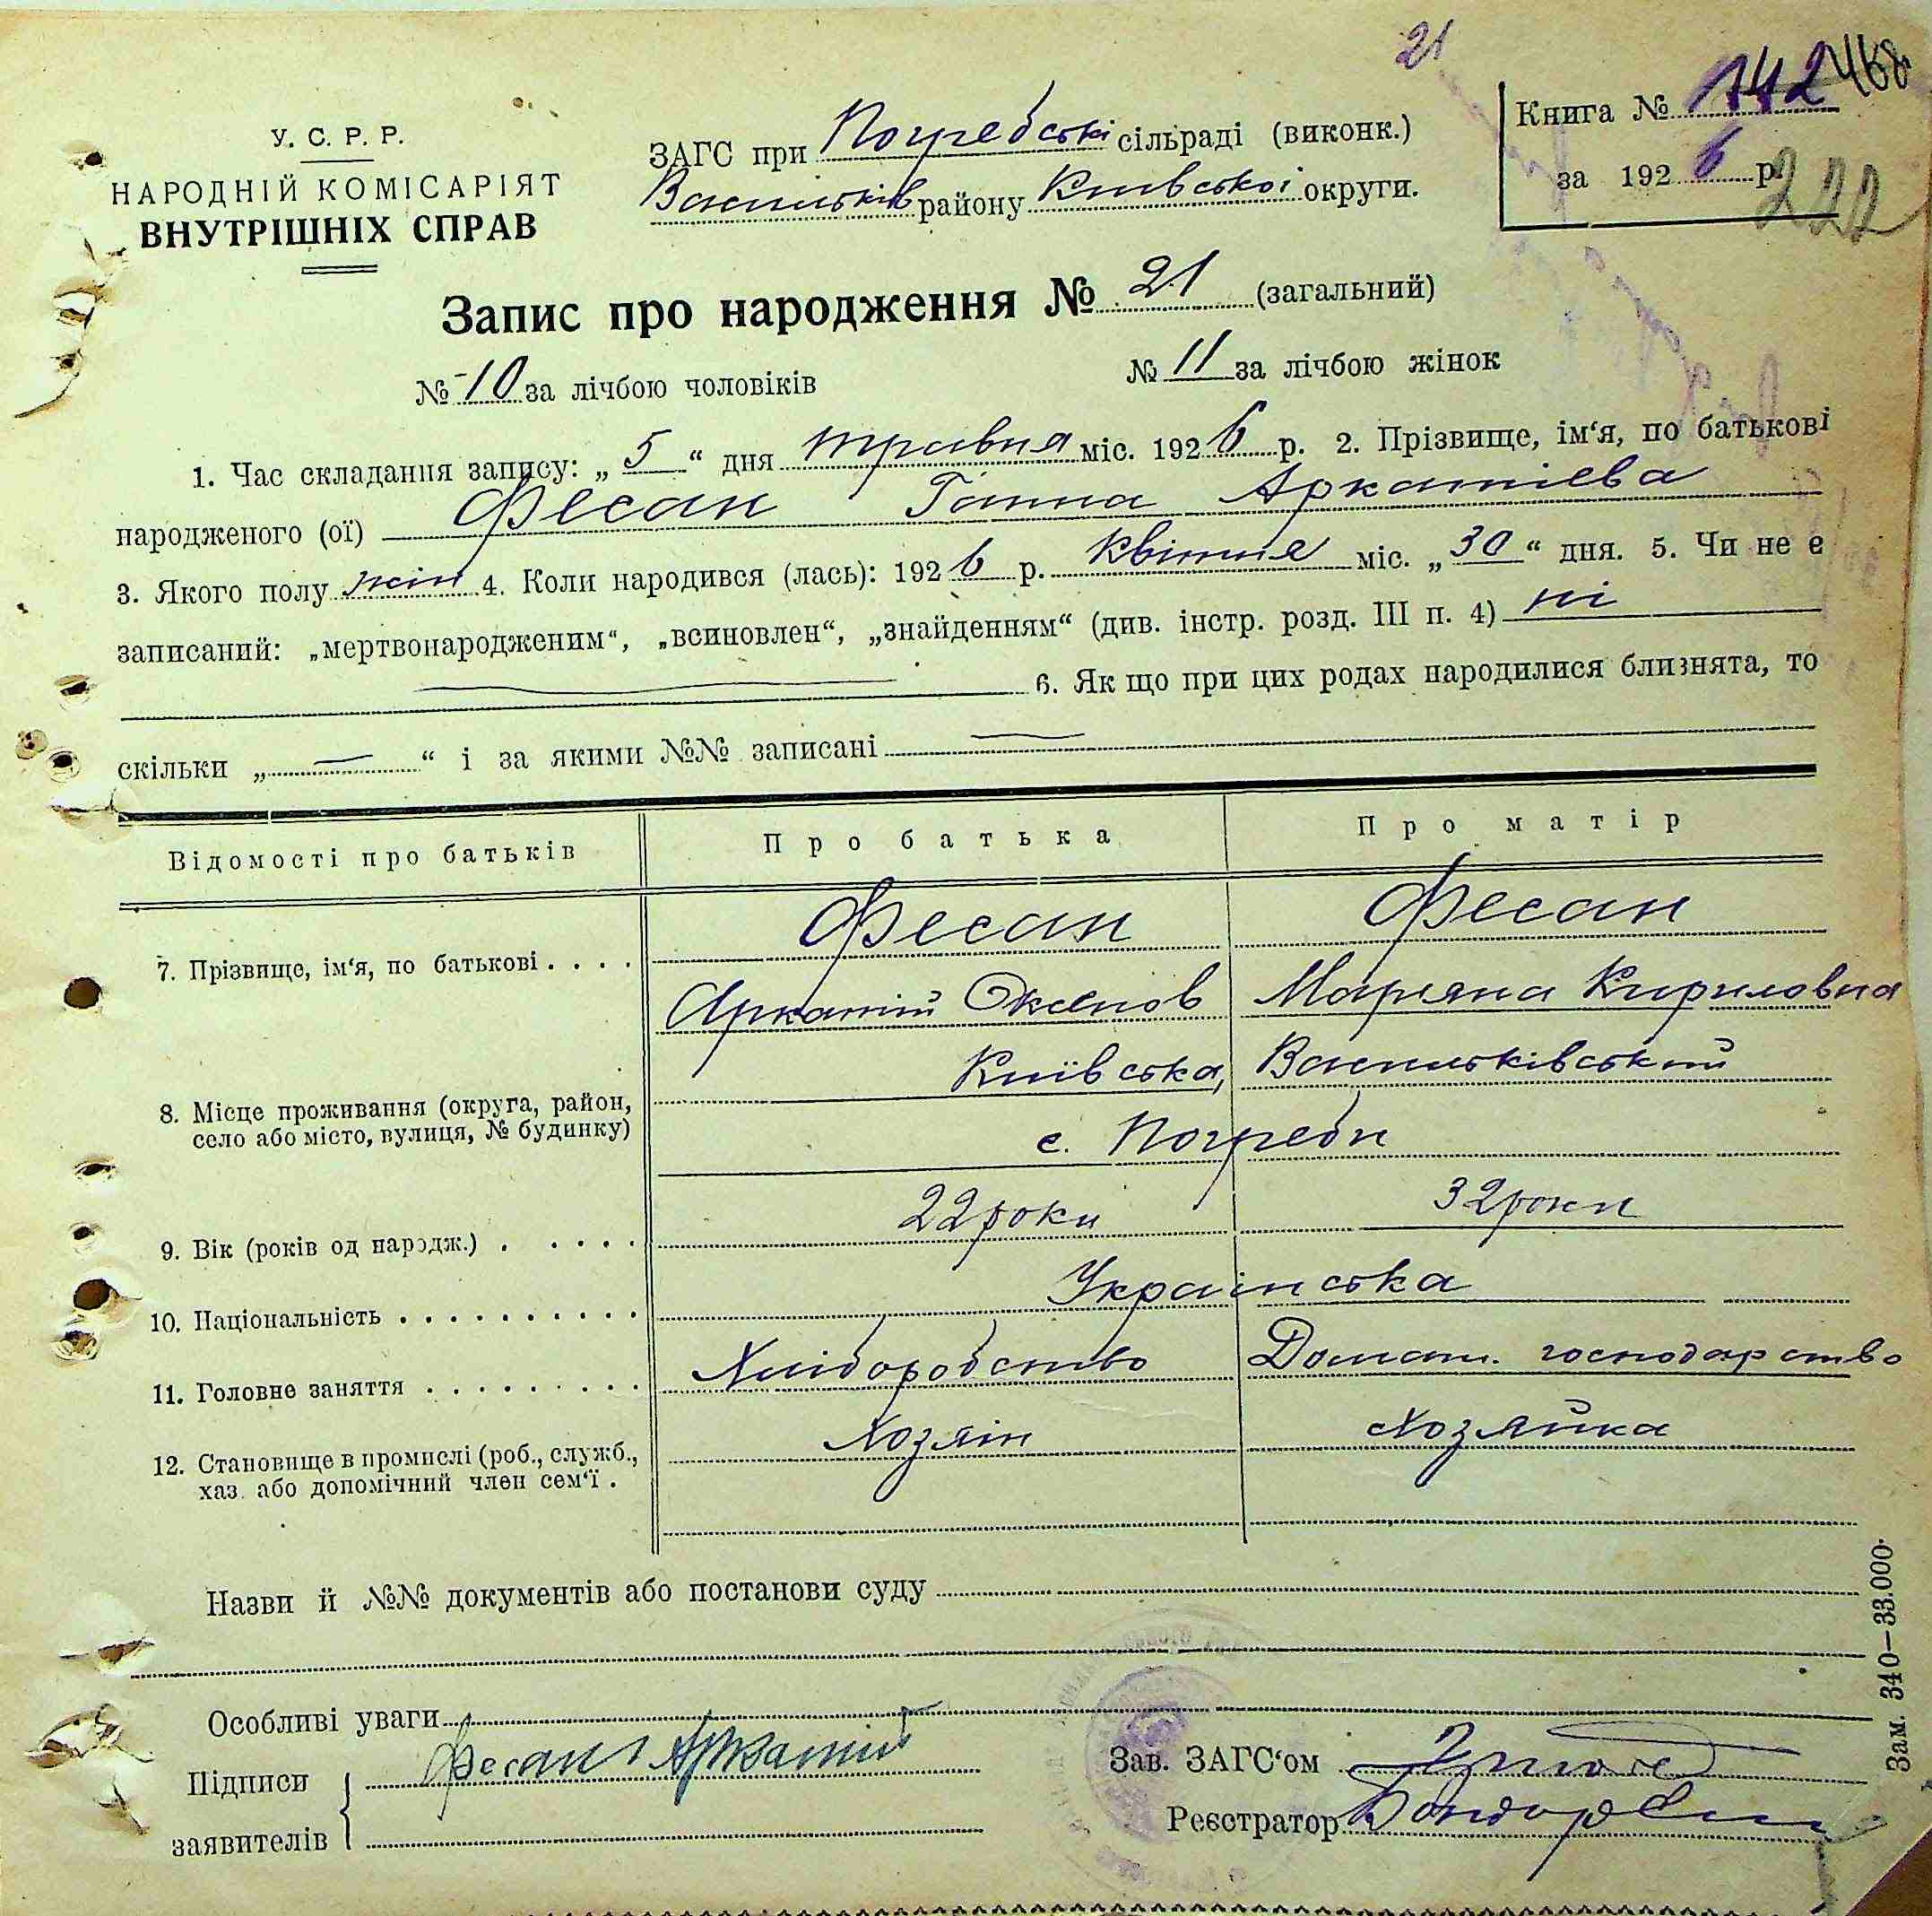 21
У. С. Р. Р.
НАРОДНІЙ КОМІСАРІЯТ
ВНУТРІШНІХ СПРАВ
ЗАГС при Погребські сільраді (виконк.)
Васильків району Київської округи.
Книга № 142 468
за 1926 р. 222
Запис про народження № 21 (загальний)
№ 10 за лічбою чоловіків № 11 за лічбою жінок
1. Час складання запису: „ 5 “ дня травня міс. 1926 р. 2. Прізвище, ім‘я, по батькові
народженого (ої) Фесан Ганна Аркатієва
3. Якого полу жін 4. Коли народився (лась): 1926 р. Квітня міс. „ 30 “ дня. 5. Чи не є
записаний: „мертвонародженим“, „всиновлен“, „знайденням“ (див. інстр. розд. III п. 4) ні
6. Як що при цих родах народилися близнята, то
скільки „ — “ і за якими №№ записані —
Відомості про батьків Про батька Про матір
Фесан Фесан
7. Прізвище, ім‘я, по батькові . . . .
Аркатій Оксенов Марьяна Кириловна
Київська, Васильківський
8. Місце проживання (округа, район,
село або місто, вулиця, № будинку)
с. Погреби
9. Вік (років од народж.) . . . . . 22 роки 32 роки
10. Національність . . . . . . . . . . Українська
11. Головне заняття . . . . . . . . . Хлібородство Домашн. господарство
12. Становище в промислі (роб., служб., Хозяін Хозяйка
хаз. або допомічний член сем‘ї .
Назви й №№ документів або постанови суду
Особливі уваги
Підписи Фесан Аркатій
заявителів
Зав. ЗАГС‘ом
Реєстратор
Зам. 340—33.000.